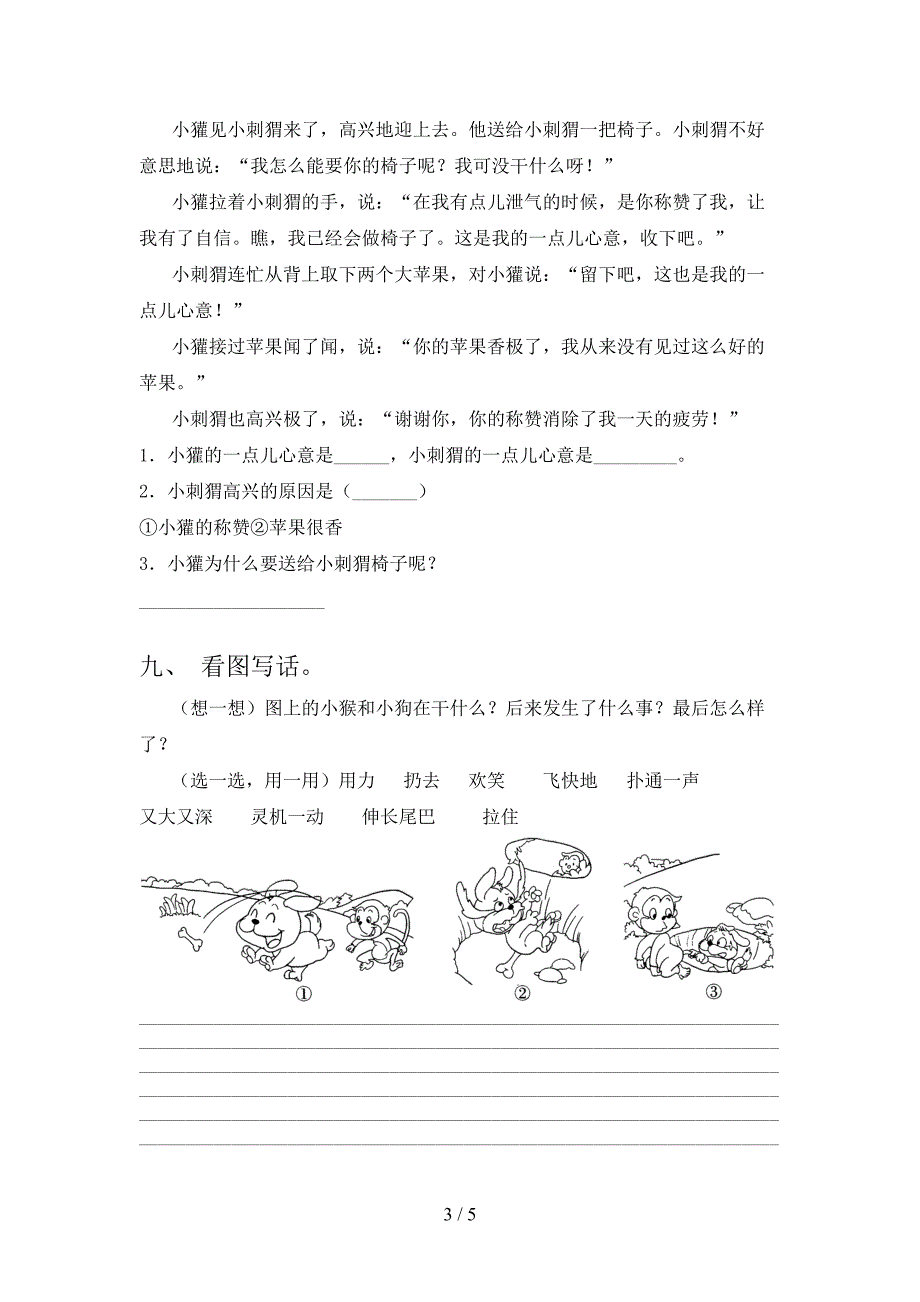 小獾见小刺猬来了，高兴地迎上去。他送给小刺猬一把椅子。小刺猬不好
意思地说：“我怎么能要你的椅子呢？我可没干什么呀！”
小獾拉着小刺猬的手，说：“在我有点儿泄气的时候，是你称赞了我，让
我有了自信。瞧，我已经会做椅子了。这是我的一点儿心意，收下吧。”
小刺猬连忙从背上取下两个大苹果，对小獾说：“留下吧，这也是我的一
点儿心意！”
小獾接过苹果闻了闻，说：“你的苹果香极了，我从来没有见过这么好的
苹果。”
小刺猬也高兴极了，说：“谢谢你，你的称赞消除了我一天的疲劳！”
1．小獾的一点儿心意是______，小刺猬的一点儿心意是_________。
2．小刺猬高兴的原因是（_______）
①小獾的称赞②苹果很香
3．小獾为什么要送给小刺猬椅子呢？
____________________
九、 看图写话。
（想一想）图上的小猴和小狗在干什么？后来发生了什么事？最后怎么样
了？
（选一选，用一用）用力 扔去 欢笑 飞快地 扑通一声
又大又深 灵机一动 伸长尾巴 拉住
① ② ③
3 / 5